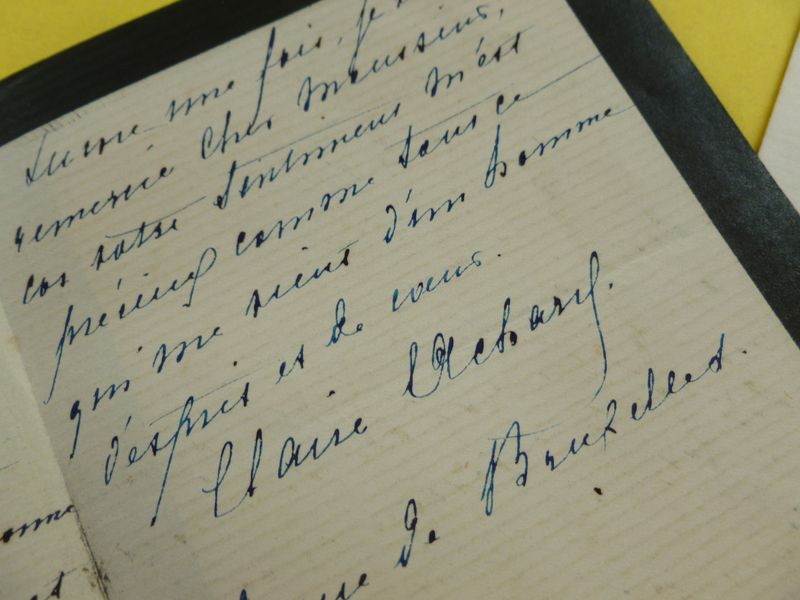 une fois, je
remercie cher monsieur,
car votre sentiment m'est
précieux comme tout ce
qui me vient d'un homme
d'esprit et de cœur.
Claire Achard.
rue de Bruxelles.